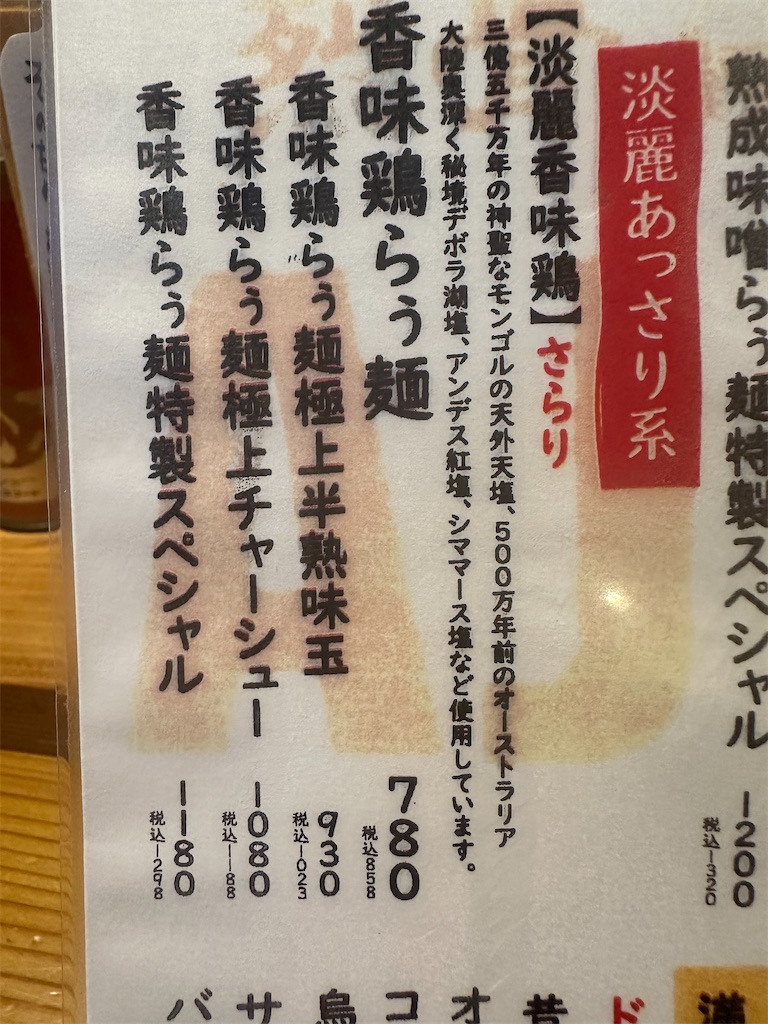 熟成味噌らぅ麺特製スペシャル
1200
税込1320
淡麗あっさり系
【淡麗香味鶏】さらり
三億五千万年の神聖なモンゴルの天外天塩、500万年前のオーストラリア
大陸奥深く秘境デボラ湖塩、アンデス紅塩、シママース塩など使用しています。
香味鶏らぅ麺
780
税込858
香味鶏らぅ麺極上半熟味玉
930
税込1023
香味鶏らぅ麺極上チャーシュー
1080
税込1188
香味鶏らぅ麺特製スペシャル
1180
税込1298
満
ド
昔
オ
コ
鳥
サ
バ